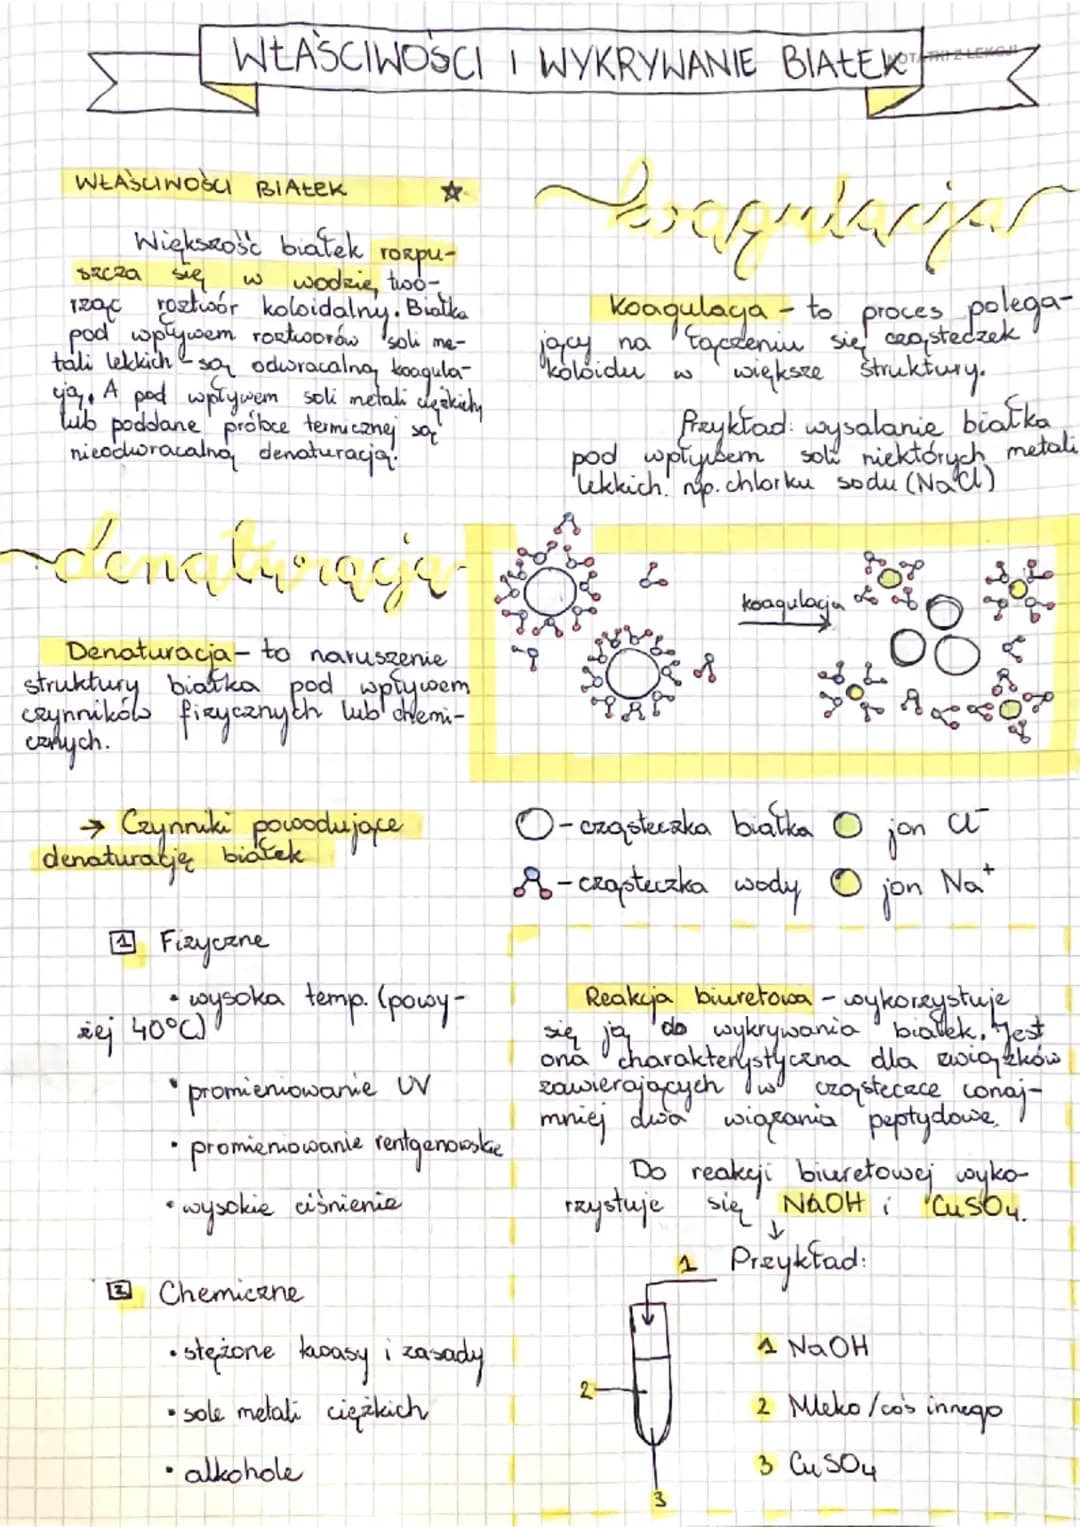 WŁAŚCIWOŚCI I WYKRYWANIE BIAŁEK
WŁAŚCIWOŚCI BIAŁEK
Większość białek rozpu-
szcza się w wodzie, two-
rząc roztwór koloidalny. Białka
pod wpływem roztworów soli me-
tali lekkich - są odwracalną koagula-
cją. A pod wpływem soli metali ciężkich
lub poddane próbce termicznej są
nieodwracalną denaturacją.
koagulacja
Koagulacja - to proces polega-
jący na łączeniu się cząsteczek
koloidu w większe struktury.
Przykład: wysalanie białka
pod wpływem soli niektórych metali
lekkich. np. chlorku sodu (NaCl)
denaturacja
Denaturacja - to naruszenie
struktury białka pod wpływem
czynników fizycznych lub chemi-
cznych.
koagulacja
O - cząsteczka białka
jon Cl⁻
- cząsteczka wody
jon Na⁺
→ Czynniki powodujące
denaturację białek
1 Fizyczne
• wysoka temp. (powy-
żej 40°C)
• promieniowanie UV
• promieniowanie rentgenowskie
• wysokie ciśnienie
2 Chemiczne
• stężone kwasy i zasady
• sole metali ciężkich
• alkohole
Reakcja biuretowa - wykorzystuje
się ją do wykrywania białek. Jest
ona charakterystyczna dla związków
zawierających w cząsteczce conaj-
mniej dwa wiązania peptydowe.
Do reakcji biuretowej wyko-
rzystuje się NaOH i CuSO₄.
↓
Przykład:
1
2
3
1 NaOH
2 Mleko/coś innego
3 CuSO₄